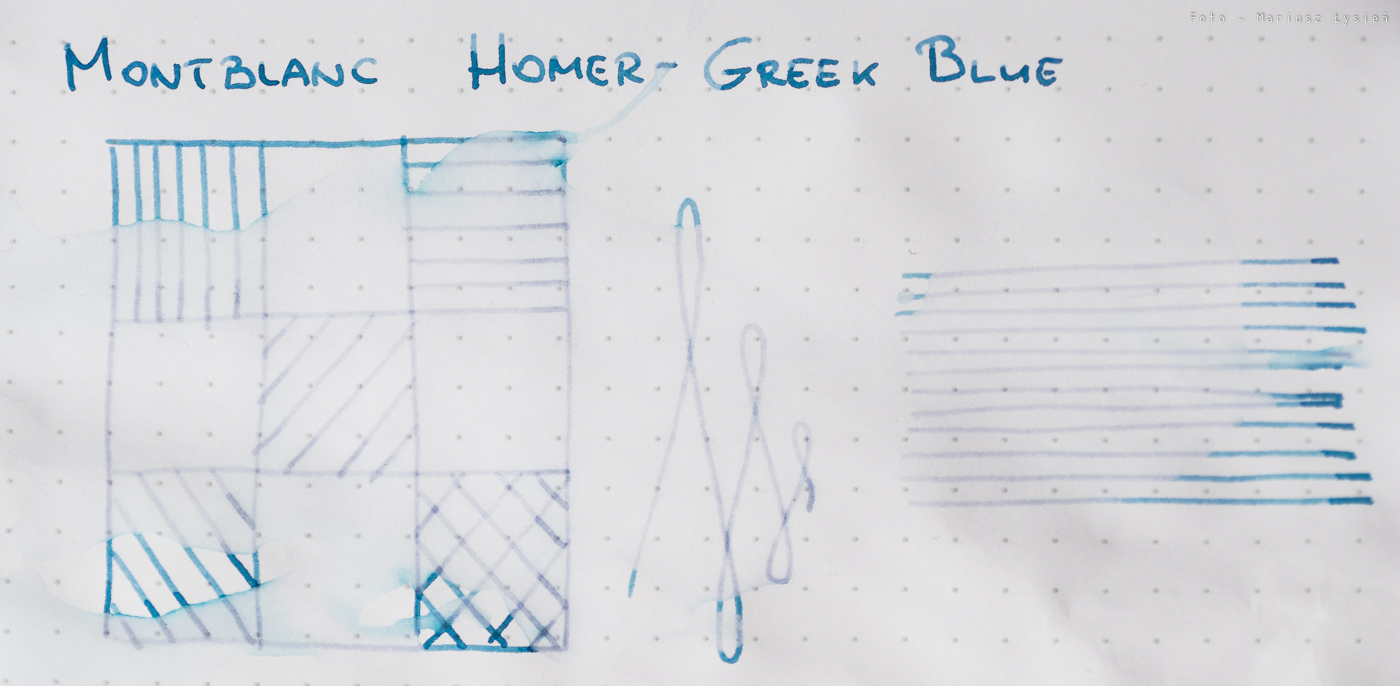 Foto - Mariusz Łysień
MONTBLANC HOMER - GREEK BLUE